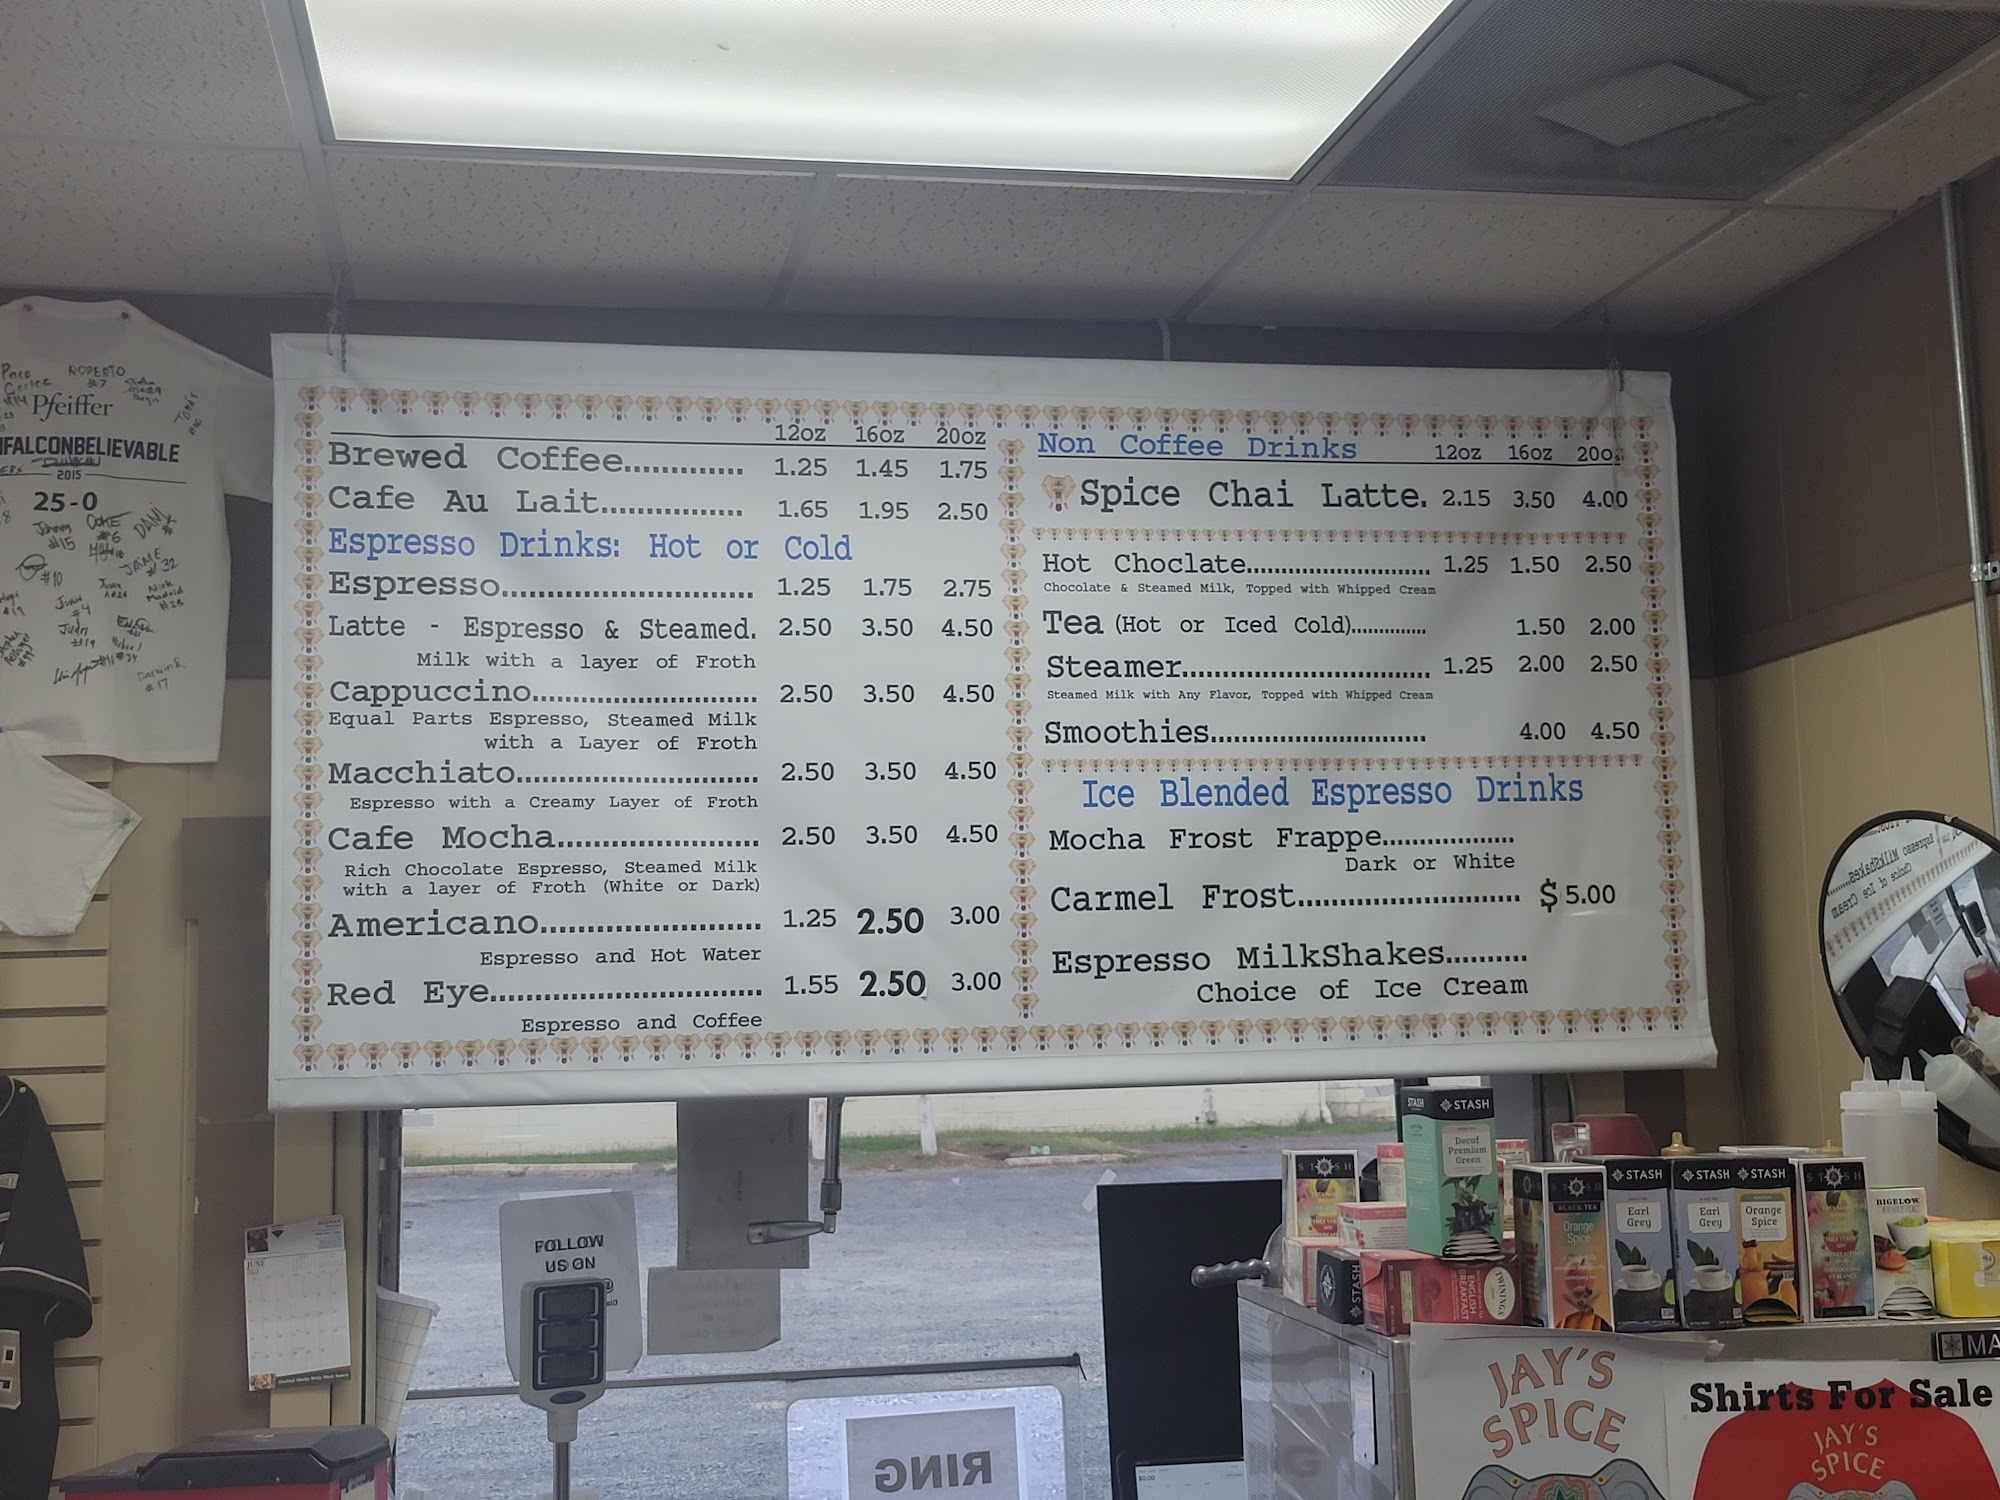 12oz 16oz 20oz
Brewed Coffee............. 1.25 1.45 1.75
Cafe Au Lait................ 1.65 1.95 2.50
Espresso Drinks: Hot or Cold
Espresso............................ 1.25 1.75 2.75
Latte - Espresso & Steamed. 2.50 3.50 4.50
Milk with a layer of Froth
Cappuccino......................... 2.50 3.50 4.50
Equal Parts Espresso, Steamed Milk
with a Layer of Froth
Macchiato........................... 2.50 3.50 4.50
Espresso with a Creamy Layer of Froth
Cafe Mocha....................... 2.50 3.50 4.50
Rich Chocolate Espresso, Steamed Milk
with a layer of Froth (White or Dark)
Americano......................... 1.25 2.50 3.00
Espresso and Hot Water
Red Eye.............................. 1.55 2.50 3.00
Espresso and Coffee
Non Coffee Drinks 12oz 16oz 20oz
Spice Chai Latte. 2.15 3.50 4.00
Hot Choclate......................... 1.25 1.50 2.50
Chocolate & Steamed Milk, Topped with Whipped Cream
Tea (Hot or Iced Cold).............. 1.50 2.00
Steamer............................... 1.25 2.00 2.50
Steamed Milk with Any Flavor, Topped with Whipped Cream
Smoothies........................... 4.00 4.50
Ice Blended Espresso Drinks
Mocha Frost Frappe................
Dark or White
Carmel Frost......................... $5.00
Espresso MilkShakes..........
Choice of Ice Cream
ROBERTO
#7
Pfeiffer
FALCONBELIEVABLE
2015
25-0
#15
DANI
JAIME
#32
#10
Juan
#4
Nick
Madrid
#17
JUNE
FOLLOW
US ON
RING
$0.00
STASH
STASH
Decaf
Premium
Green
STASH
STASH
BLACK TEA
Orange
Spice
STASH
Earl
Grey
STASH
Earl
Grey
STASH
Orange
Spice
STASH
BIGELOW
BENEFITS
STASH
ENGLISH
BREAKFAST
TWININGS
MA
JAY'S
SPICE
Shirts For Sale
JAY'S
SPICE
Espresso MilkShakes
Choice of Ice Cream